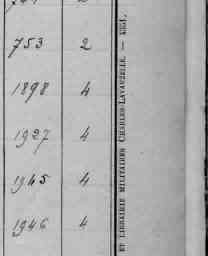 753 2
1898 4
1927 4
1945 4
1946 4
ET LIBRAIRIE MILITAIRES CHARLES-LAVAUZELLE. —